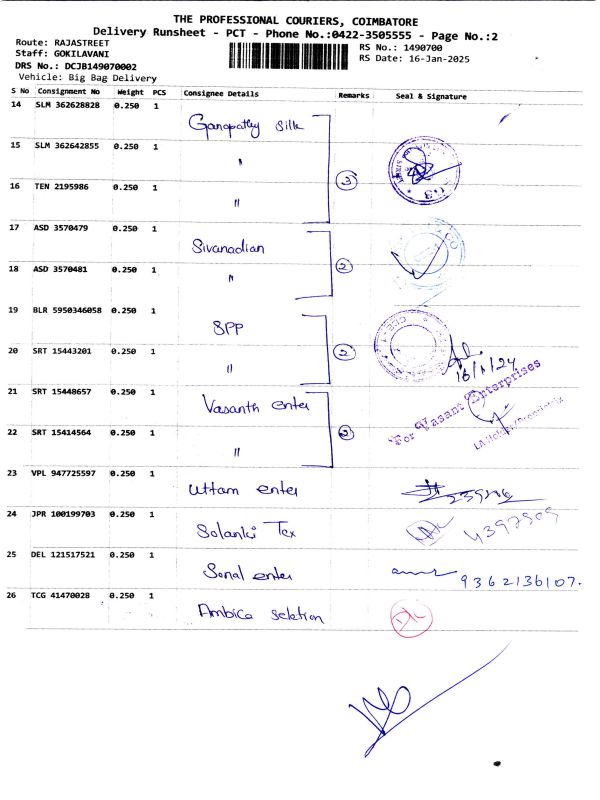 THE PROFESSIONAL COURIERS, COIMBATORE
Delivery Runsheet - PCT - Phone No.:0422-3505555 - Page No.:2
Route: RAJASTREET
RS No.: 1490700
Staff: GOKILAVANI
RS Date: 16-Jan-2025
DRS No.: DCJB149070002
Vehicle: Big Bag Delivery
S No Consignment No Weight PCS Consignee Details Remarks Seal & Signature
14 SLM 362628828 0.250 1 Ganapathy Silk
15 SLM 362642855 0.250 1 "
16 TEN 2195986 0.250 1 " 3
17 ASD 3570479 0.250 1 Sivanadian
18 ASD 3570481 0.250 1 " 2
19 BLR 5950346058 0.250 1 SPP
20 SRT 15443201 0.250 1 " 2 16/1/24
21 SRT 15448657 0.250 1 Vasanth enter For Vasant Enterprises
22 SRT 15414564 0.250 1 " 2
23 VPL 947725597 0.250 1 Uttam enter
24 JPR 100199703 0.250 1 Solanki Tex
25 DEL 121517521 0.250 1 Sonal enter 9362136107.
26 TCG 41470028 0.250 1 Ambica seletion